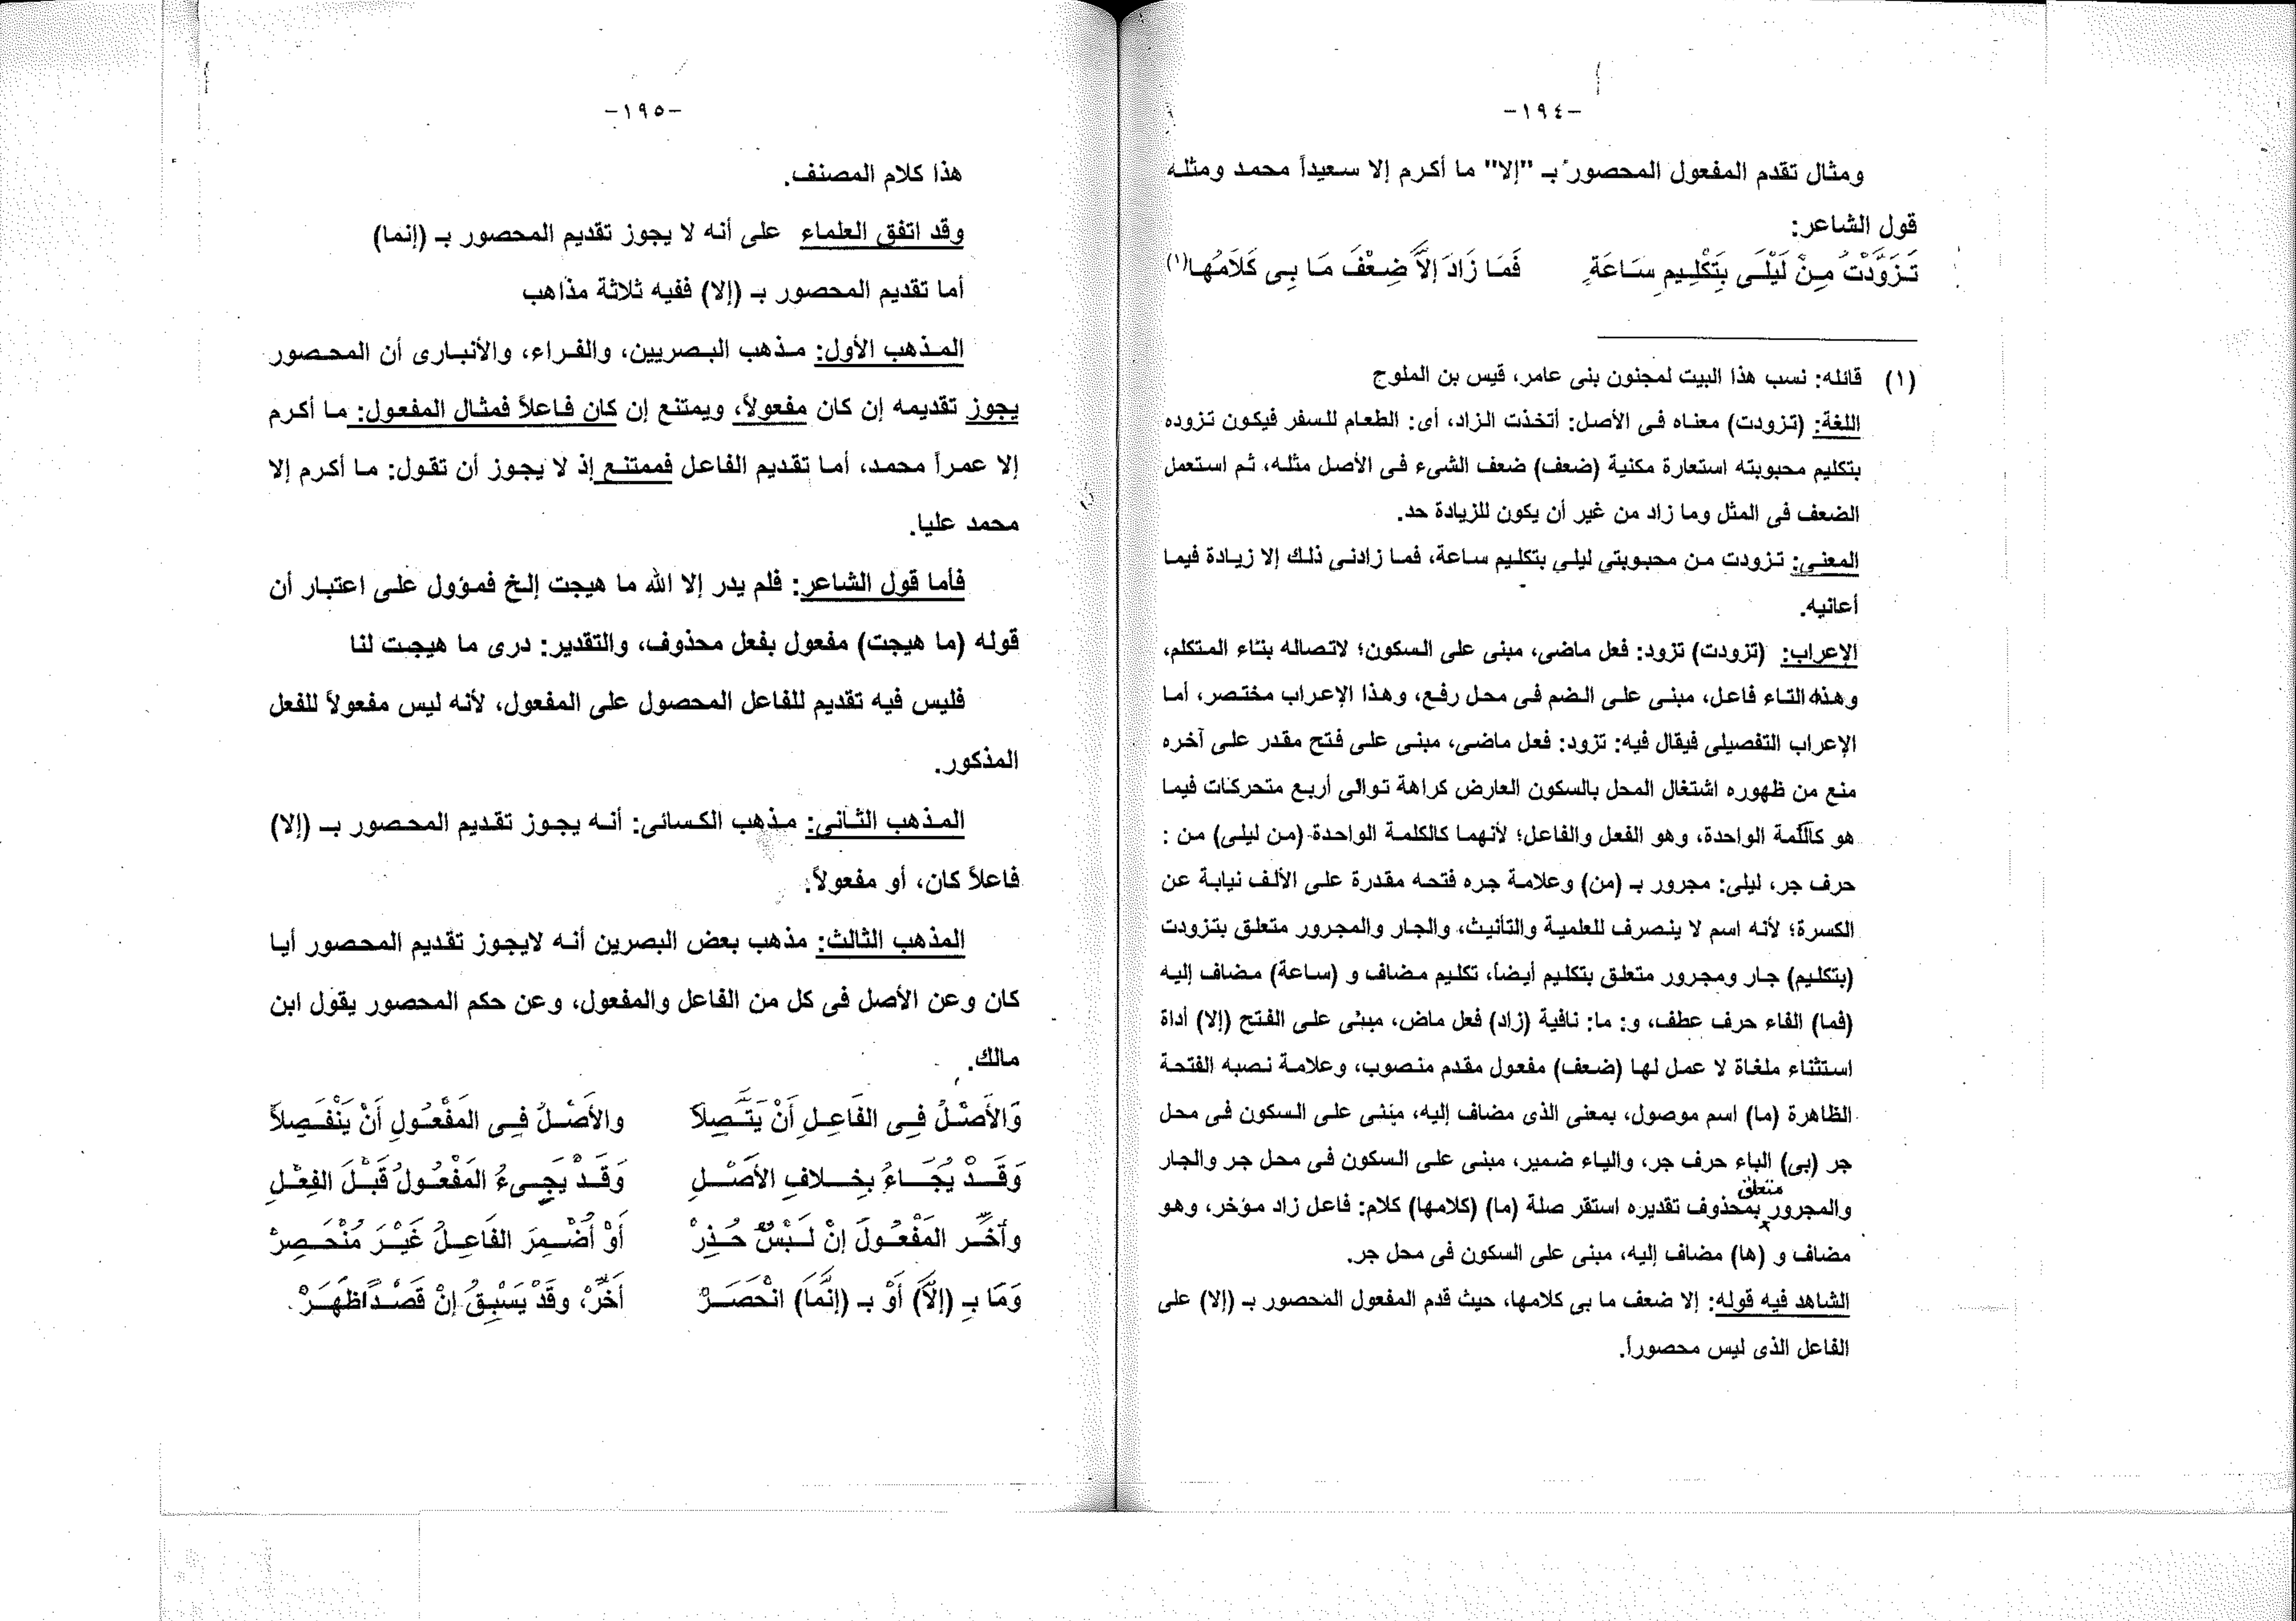 -١٩٤-
ومثال تقدم المفعول المحصور بـ "إلا" ما أكرم إلا سعيداً محمد ومثله
قول الشاعر:
تَزَوَّدْتُ مِنْ لَيْلَى بِتَكْلِيمِ سَاعَةٍ فَمَا زَادَ إلاَّ ضِعْفَ مَا بِى كَلَامُهَا(١)
(١) قائله: نسب هذا البيت لمجنون بنى عامر، قيس بن الملوح
اللغة: (تزودت) معناه فى الأصل: أتخذت الزاد، أى: الطعام للسفر فيكون تزوده
بتكليم محبوبته استعارة مكنية (ضعف) ضعف الشىء فى الأصل مثله، ثم استعمل
الضعف فى المثل وما زاد من غير أن يكون للزيادة حد.
المعنى: تزودت من محبوبتي ليلى بتكليم ساعة، فما زادنى ذلك إلا زيادة فيما
أعانيه.
الإعراب: (تزودت) تزود: فعل ماضى، مبنى على السكون؛ لاتصاله بتاء المتكلم،
وهذه التاء فاعل، مبنى على الضم فى محل رفع، وهذا الإعراب مختصر، أما
الإعراب التفصيلى فيقال فيه: تزود: فعل ماضى، مبنى على فتح مقدر على آخره
منع من ظهوره اشتغال المحل بالسكون العارض كراهة توالى أربع متحركات فيما
هو كالكلمة الواحدة، وهو الفعل والفاعل؛ لأنهما كالكلمة الواحدة (من ليلى) من :
حرف جر، ليلى: مجرور بـ (من) وعلامة جره فتحه مقدرة على الألف نيابة عن
الكسرة؛ لأنه اسم لا ينصرف للعلمية والتأنيث، والجار والمجرور متعلق بتزودت
(بتكليم) جار ومجرور متعلق بتكليم أيضاً، تكليم مضاف و (ساعة) مضاف إليه
(فما) الفاء حرف عطف، و: ما: نافية (زاد) فعل ماض، مبنى على الفتح (إلا) أداة
استثناء ملغاة لا عمل لها (ضعف) مفعول مقدم منصوب، وعلامة نصبه الفتحة
الظاهرة (ما) اسم موصول، بمعنى الذى مضاف إليه، مبنى على السكون فى محل
جر (بى) الباء حرف جر، والياء ضمير، مبنى على السكون فى محل جر والجار
متعلق
والمجرور بمحذوف تقديره استقر صلة (ما) (كلامها) كلام: فاعل زاد مؤخر، وهو
مضاف و (ها) مضاف إليه، مبنى على السكون فى محل جر.
الشاهد فيه قوله: إلا ضعف ما بى كلامها، حيث قدم المفعول المحصور بـ (إلا) على
الفاعل الذى ليس محصوراً.
-١٩٥-
هذا كلام المصنف.
وقد اتفق العلماء على أنه لا يجوز تقديم المحصور بـ (إنما)
أما تقديم المحصور بـ (إلا) ففيه ثلاثة مذاهب
المذهب الأول: مذهب البصريين، والفراء، والأنبارى أن المحصور
يجوز تقديمه إن كان مفعولاً، ويمتنع إن كان فاعلاً فمثال المفعول: ما أكرم
إلا عمراً محمد، أما تقديم الفاعل فممتنع إذ لا يجوز أن تقول: ما أكرم إلا
محمد عليا.
فأما قول الشاعر: فلم يدر إلا الله ما هيجت إلخ فمؤول على اعتبار أن
قوله (ما هيجت) مفعول بفعل محذوف، والتقدير: درى ما هيجت لنا
فليس فيه تقديم للفاعل المحصول على المفعول، لأنه ليس مفعولاً للفعل
المذكور.
المذهب الثانى: مذهب الكسائى: أنه يجوز تقديم المحصور بـ (إلا)
فاعلاً كان، أو مفعولاً.
المذهب الثالث: مذهب بعض البصرين أنه لايجوز تقديم المحصور أيا
كان وعن الأصل فى كل من الفاعل والمفعول، وعن حكم المحصور يقول ابن
مالك.
وَالأَصْلُ فِى الفَاعِلِ أَنْ يَتَّصِلاَ والأَصْلُ فِى المَفْعُولِ أَنْ يَنْفَصِلاَ
وَقَدْ يُجَاءُ بِخِلافِ الأَصْلِ وَقَدْ يَجِىءُ المَفْعُولُ قَبْلَ الفِعْلِ
وأَخِّر المَفْعُولَ إنْ لَبْسٌ حُذِرْ أَوْ أُضْمِرَ الفَاعِلُ غَيْرَ مُنْحَصِرْ
وَمَا بِـ (إلاَّ) أَوْ بِـ (إنَّمَا) انْحَصَرْ أَخِّرْ، وقَدْ يَسْبِقُ إنْ قَصْدٌ ظَهَرْ.